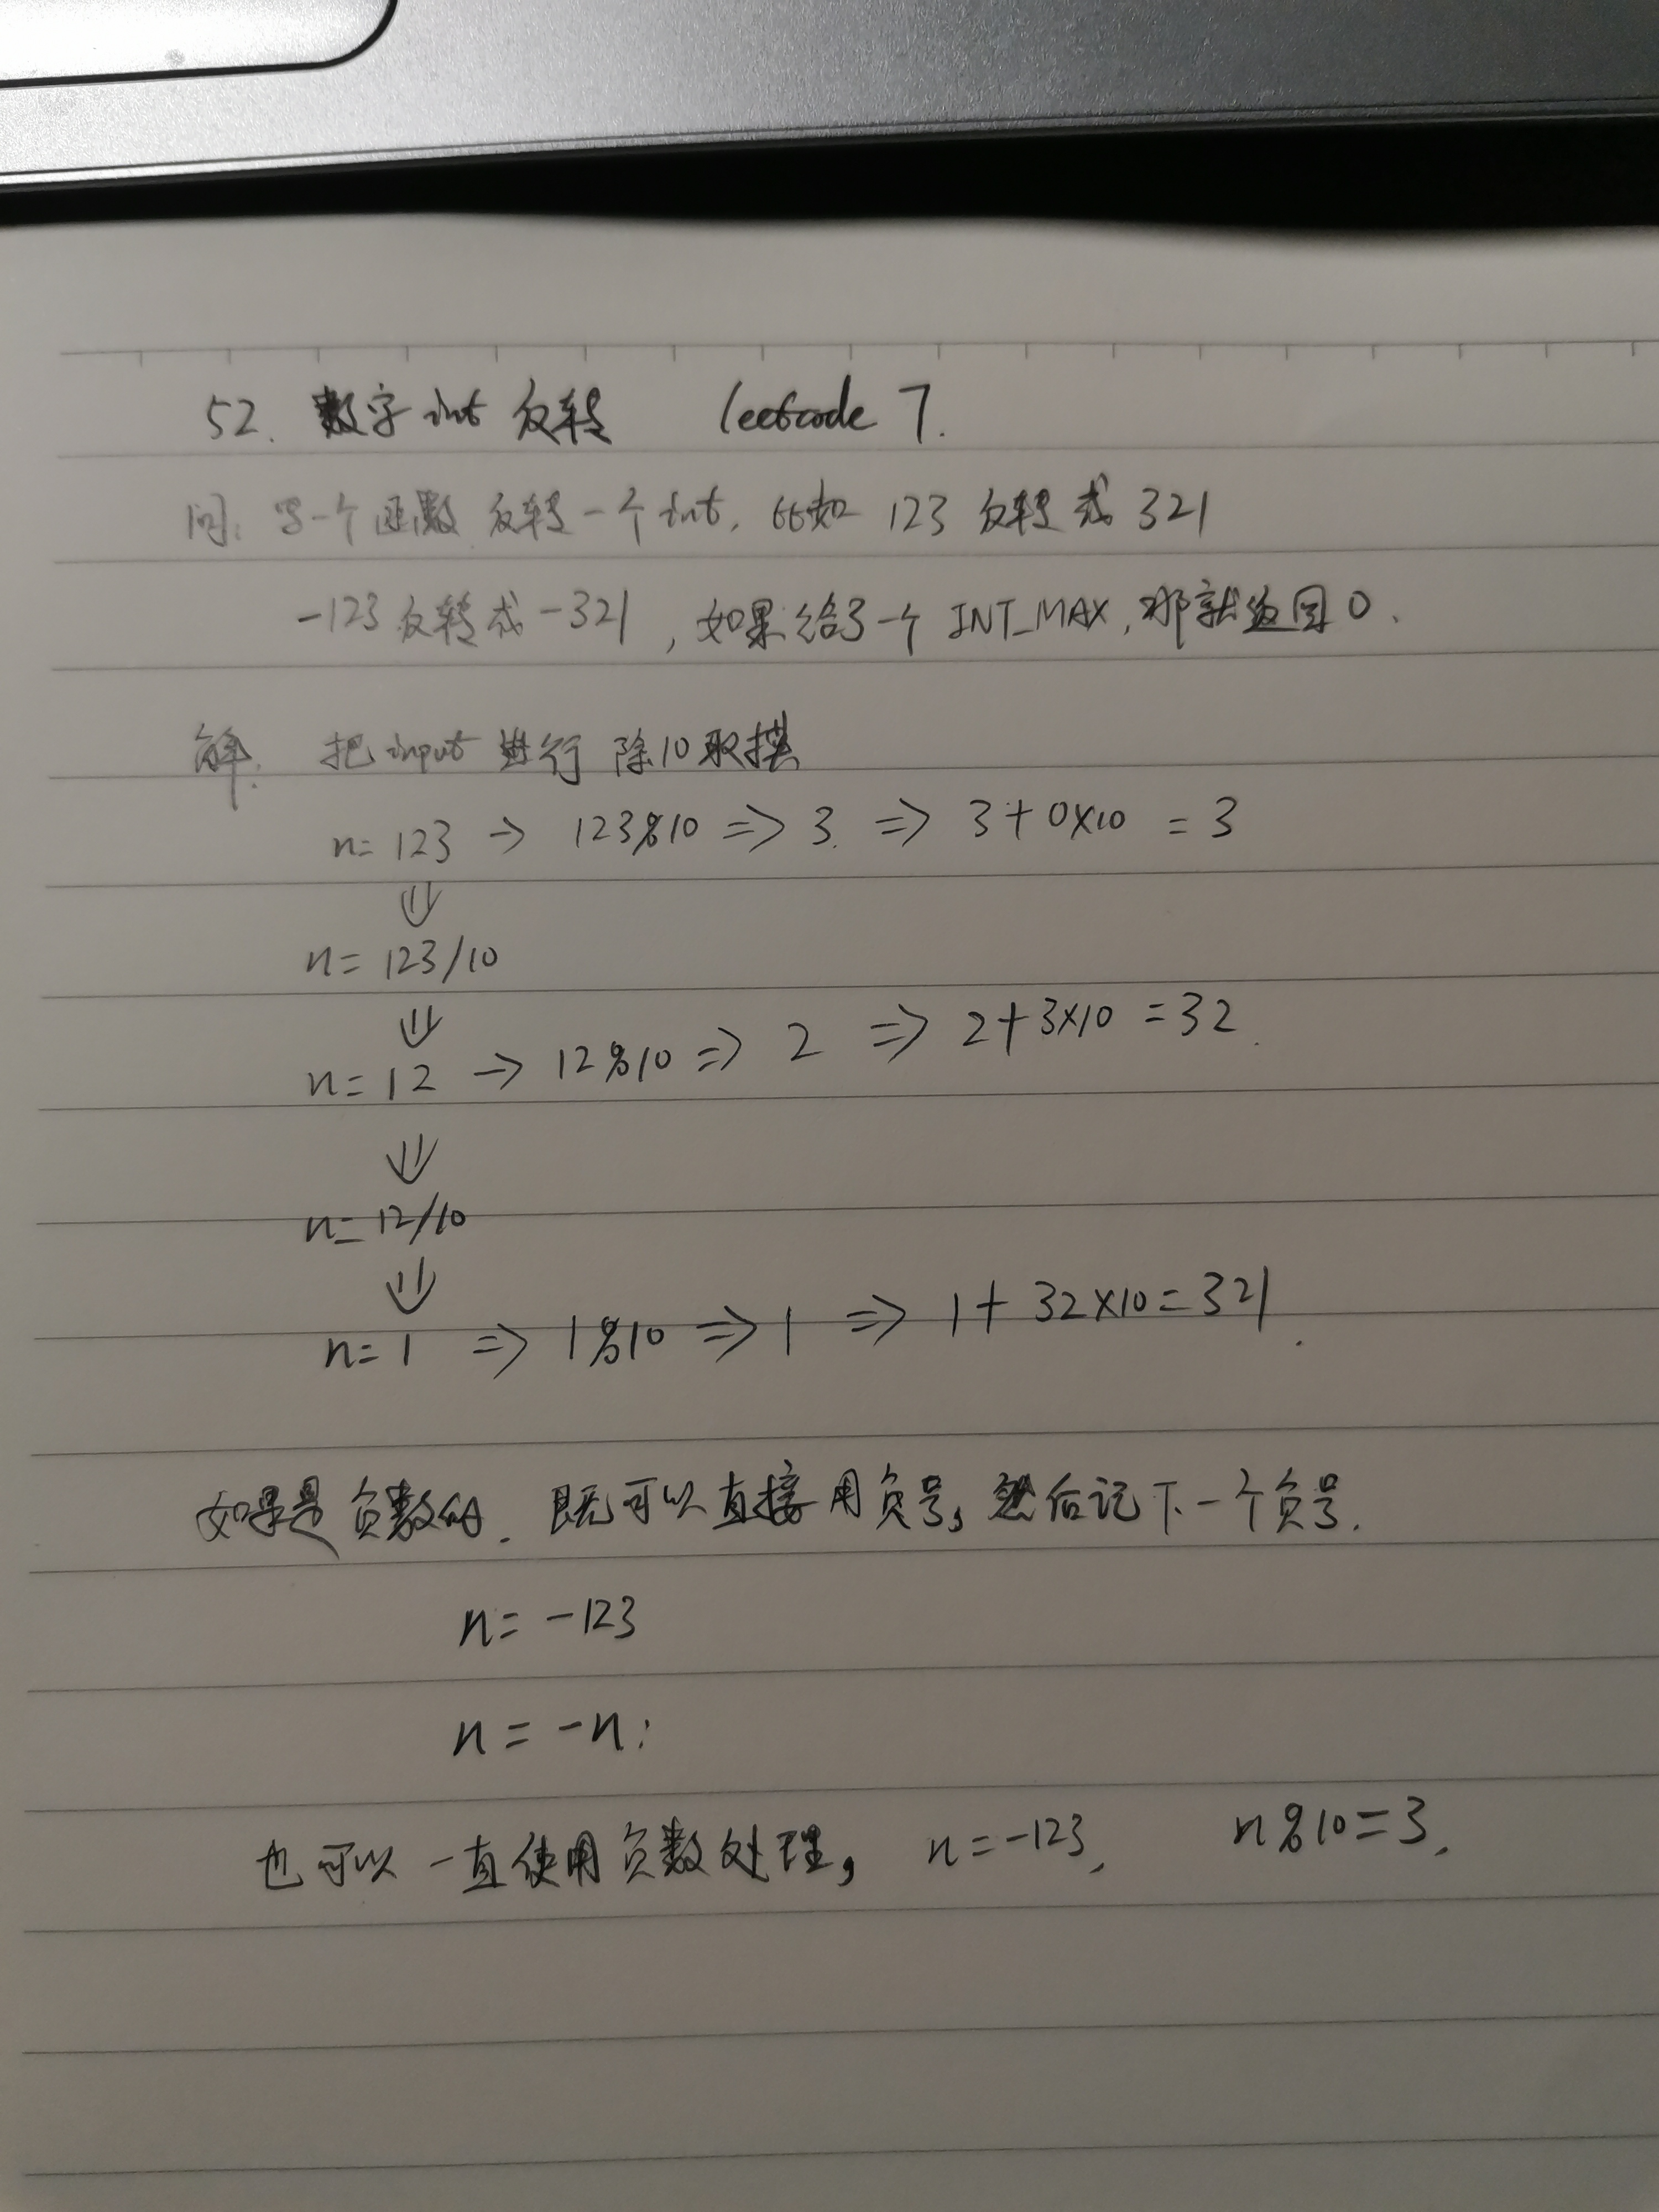 52. 数字 int 反转 leetcode 7.
问: 写一个函数 反转一个 int, 比如 123 反转成 321
-123 反转成 -321, 如果给了一个 INT_MAX, 那就返回 0.
解: 把 input 进行 除10取模
n= 123 → 123%10 => 3. => 3+0×10 = 3
⇓
n= 123/10
⇓
n= 12 → 12%10 => 2 => 2+3×10 = 32.
⇓
n= 12/10
⇓
n= 1 => 1%10 => 1 => 1+ 32×10 = 321.
如果是负数的. 既可以直接用负号, 然后记下一个负号.
n= -123
n = -n;
也可以一直使用负数处理, n = -123, n%10 = 3.